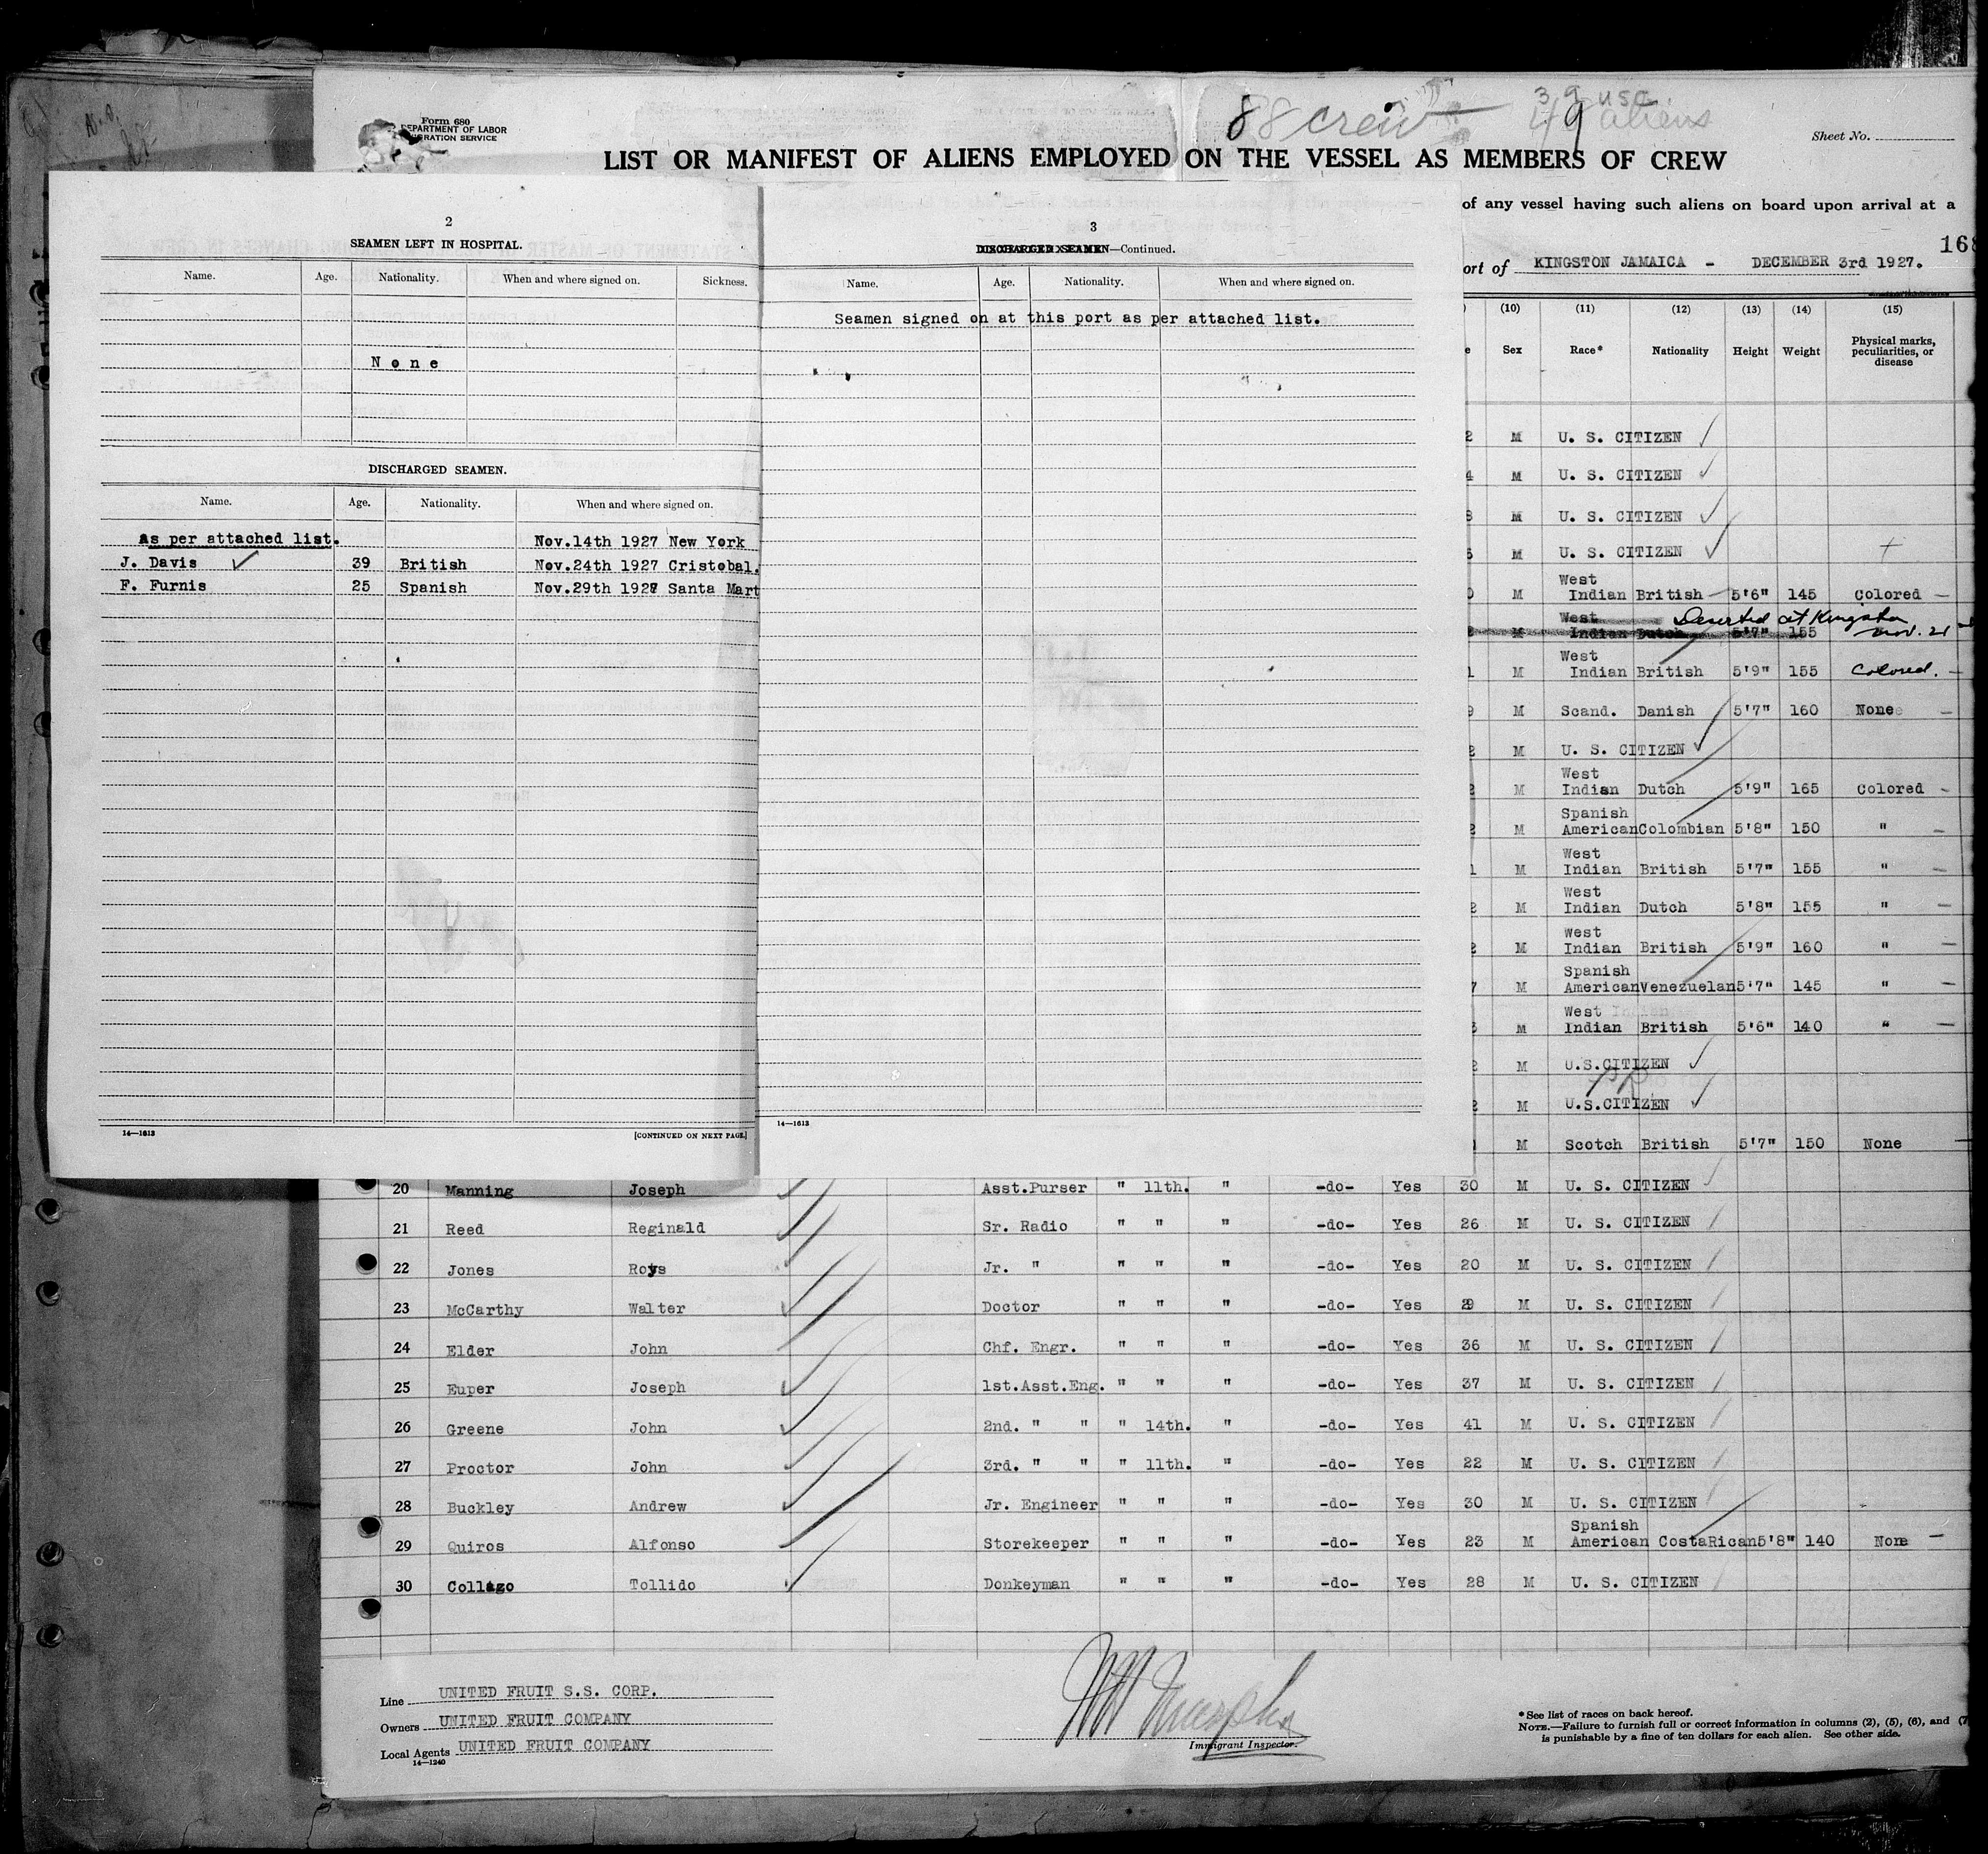 Form 680
DEPARTMENT OF LABOR
IGRATION SERVICE
88 crew
39 USC
49 aliens
Sheet No.
LIST OR MANIFEST OF ALIENS EMPLOYED ON THE VESSEL AS MEMBERS OF CREW
of any vessel having such aliens on board upon arrival at a
168
ort of KINGSTON JAMAICA - DECEMBER 3rd 1927.
2
SEAMEN LEFT IN HOSPITAL.
Name. Age. Nationality. When and where signed on. Sickness.
None
DISCHARGED SEAMEN.
Name. Age. Nationality. When and where signed on.
As per attached list. Nov.14th 1927 New York
J. Davis 39 British Nov.24th 1927 Cristobal.
F. Furnis 25 Spanish Nov.29th 1927 Santa Mart
14—1613
[CONTINUED ON NEXT PAGE]
3
DISCHARGED SEAMEN—Continued.
Name. Age. Nationality. When and where signed on.
Seamen signed on at this port as per attached list.
14—1613
(10) (11) (12) (13) (14) (15)
e Sex Race* Nationality Height Weight Physical marks, peculiarities, or disease
2 M U. S. CITIZEN
4 M U. S. CITIZEN
8 M U. S. CITIZEN
M U. S. CITIZEN
West
0 M Indian British 5'6" 145 Colored
West Deserted at Kingston
M Indian Dutch 5'7" 155 Nov. 21
West
1 M Indian British 5'9" 155 Colored.
9 M Scand. Danish 5'7" 160 None
2 M U. S. CITIZEN
West
2 M Indian Dutch 5'9" 165 Colored
Spanish
2 M American Colombian 5'8" 150 "
West
1 M Indian British 5'7" 155 "
West
2 M Indian Dutch 5'8" 155 "
West
2 M Indian British 5'9" 160 "
Spanish
7 M American Venezuelan 5'7" 145 "
West Indian
M Indian British 5'6" 140 "
2 M U.S.CITIZEN
PP
2 M U.S.CITIZEN
M Scotch British 5'7" 150 None
20 Manning Joseph Asst.Purser " 11th. " -do- Yes 30 M U. S. CITIZEN
21 Reed Reginald Sr. Radio " " " -do- Yes 26 M U. S. CITIZEN
22 Jones Roys Jr. " " " " -do- Yes 20 M U. S. CITIZEN
23 McCarthy Walter Doctor " " " -do- Yes 29 M U. S. CITIZEN
24 Elder John Chf. Engr. " " " -do- Yes 36 M U. S. CITIZEN
25 Euper Joseph 1st.Asst.Eng. " " " -do- Yes 37 M U. S. CITIZEN
26 Greene John 2nd. " " " 14th. " -do- Yes 41 M U. S. CITIZEN
27 Proctor John 3rd. " " " 11th. " -do- Yes 22 M U. S. CITIZEN
28 Buckley Andrew Jr. Engineer " " " -do- Yes 30 M U. S. CITIZEN
Spanish
29 Quiros Alfonso Storekeeper " " " -do- Yes 23 M American CostaRican 5'8" 140 None
30 Collazo Tollido Donkeyman " " " -do- Yes 28 M U. S. CITIZEN
Line UNITED FRUIT S.S. CORP.
Owners UNITED FRUIT COMPANY
Local Agents UNITED FRUIT COMPANY
14—1240
Murphy
Immigrant Inspector.
*See list of races on back hereof.
NOTE.—Failure to furnish full or correct information in columns (2), (5), (6), and (7
is punishable by a fine of ten dollars for each alien. See other side.